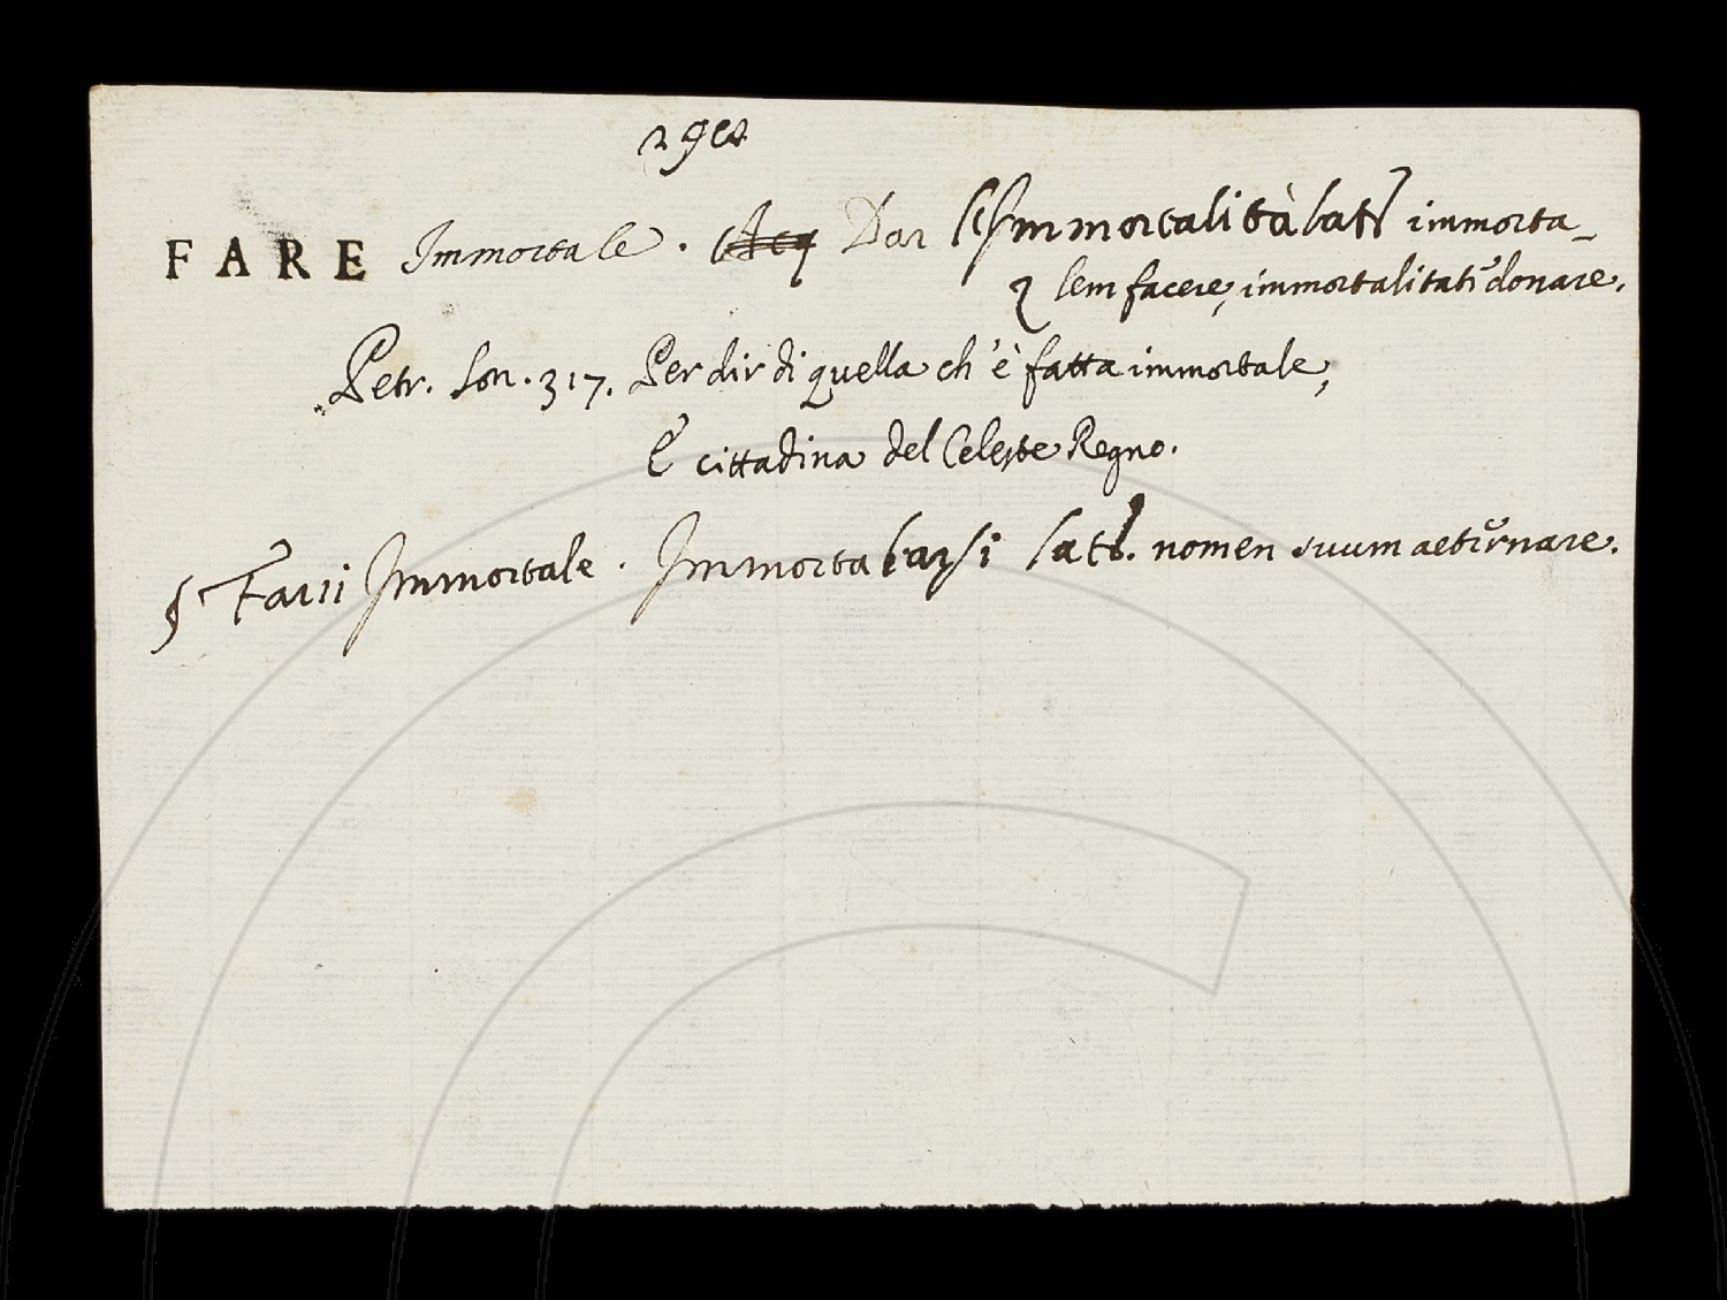 FARE Immortale. Acq Dar l'Immortalità lat. immorta-
lem facere, immortalitatē donare.
Petr. Son. 317. Per dir di quella ch'è fatta immortale,
E cittadina del Celeste Regno.
§ Farsi Immortale. Immortalarsi lat. nomen suum aeturnare.